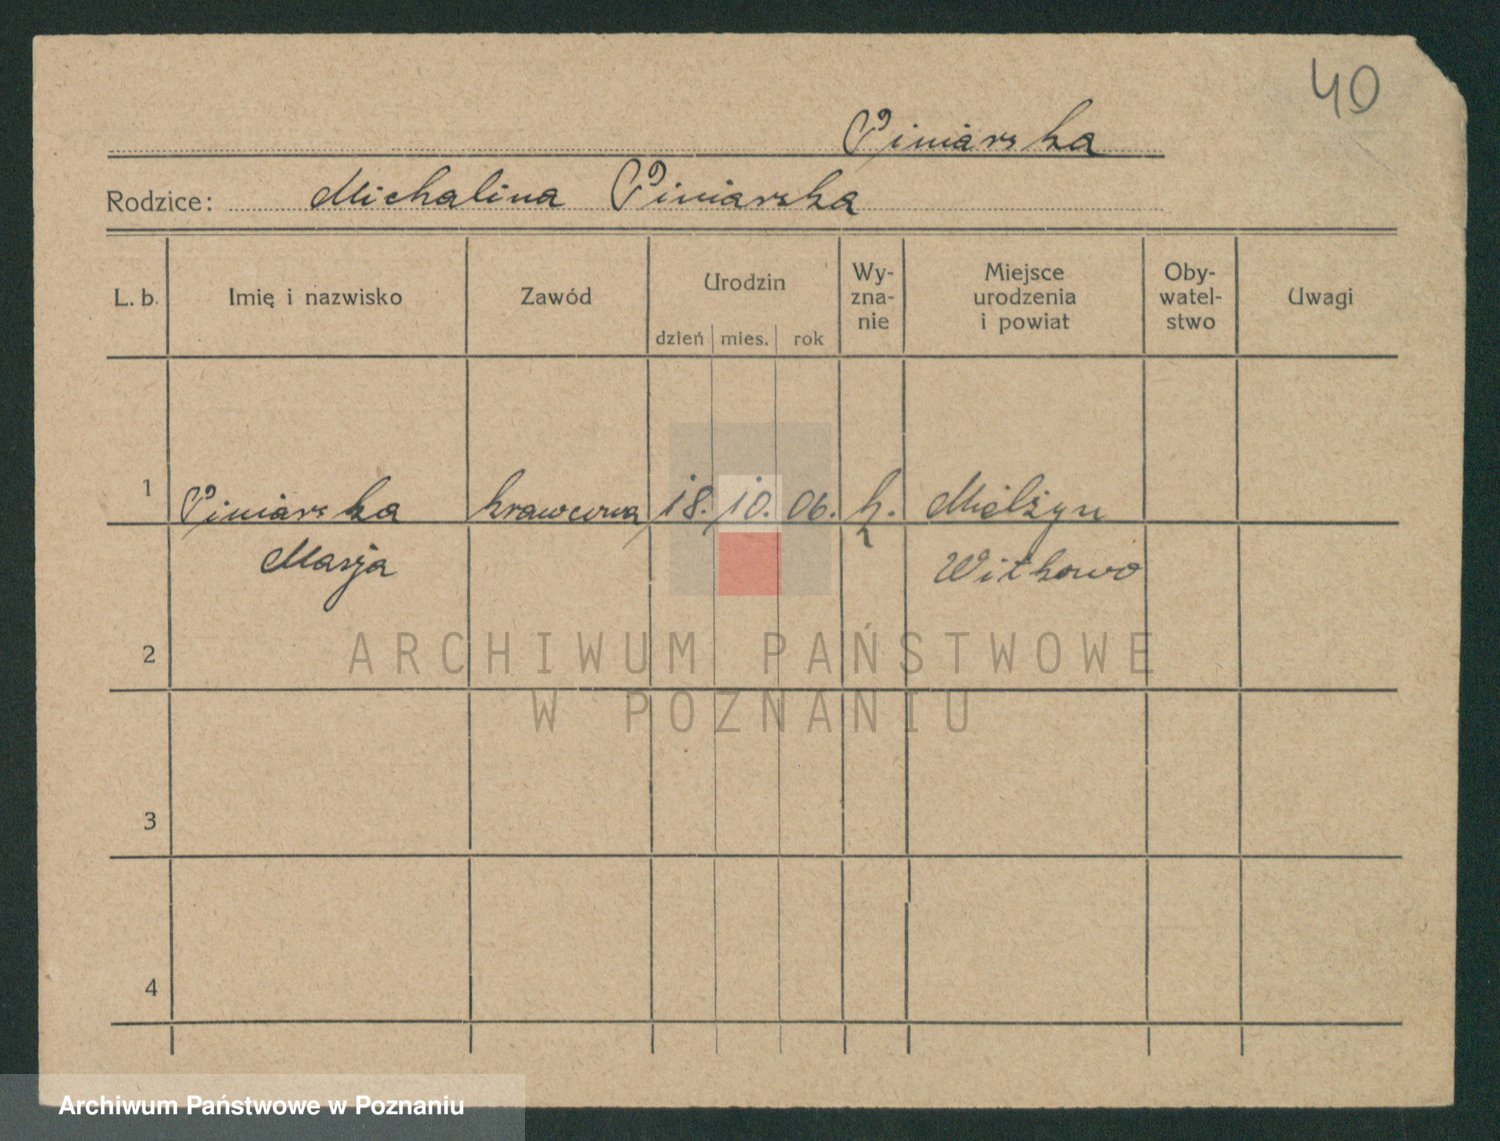 40
Piniarska
Rodzice: Michalina Piniarska
L. b. Imię i nazwisko Zawód Urodzin dzień mies. rok Wy-zna-nie Miejsce urodzenia i powiat Oby-watel-stwo Uwagi
1 Piniarska krawcowa 18. 10. 06. k. Mielżyn
Marja Witkowo
2
ARCHIWUM PAŃSTWOWE
W POZNANIU
3
4
Archiwum Państwowe w Poznaniu